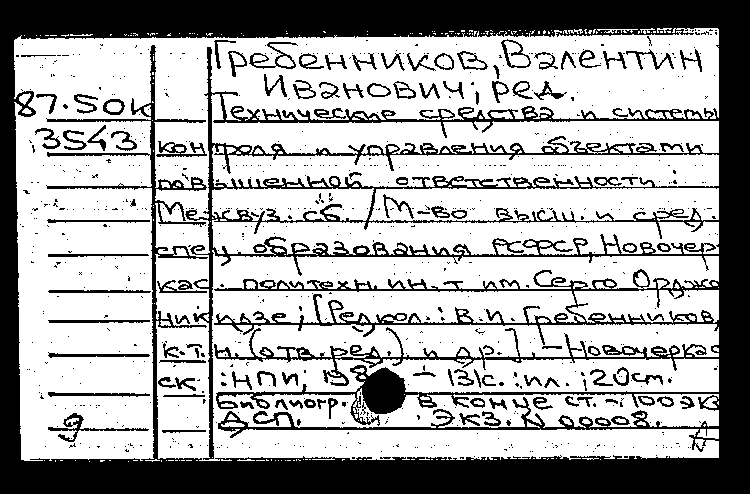 Гребенников, Валентин
Иванович; ред.
87.SOK
Технические средства и системы
3543
контроля и управления объектами
повышенной ответственности:
Межвуз. сб. / М-во высш. и сред.
спец. образования РСФСР, Новочер-
кас. политехн. ин-т им. Серго Орджо-
никидзе; [Редкол.: В.И. Гребенников,
к.т.н. (отв. ред.) и др.]. - Новочеркас
ск: НПИ, 198 - 131с.: ил.; 20см.
Библиогр. в конце ст. - 100 экз
ДСП. Экз. N 00008.